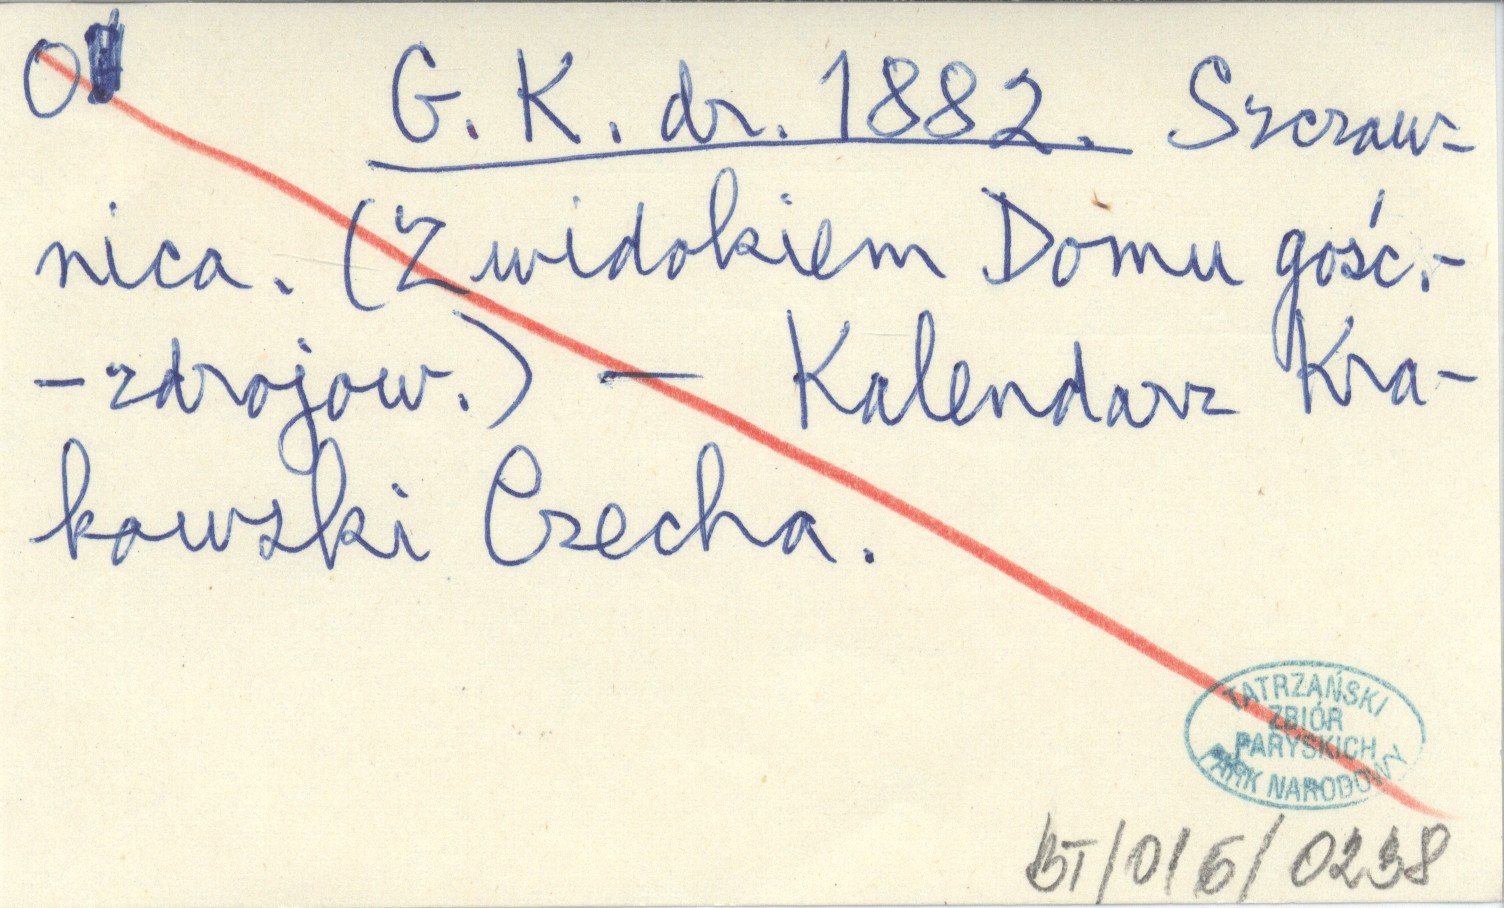 O G. K. dr. 1882. Szczaw-
nica. (Z widokiem Domu gośc.-
-zdrojow.) — Kalendarz Kra-
kowski Czecha.
TATRZAŃSKI
ZBIÓR
PARYSKICH
PARK NARODOWY
BT/O/G/0238